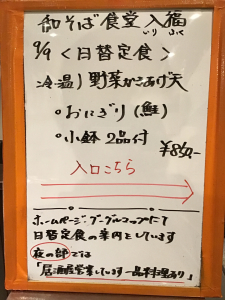 和そば食堂 入福
いり ふく
9/9 <日替定食>
冷・温) 野菜かきあげ天
・おにぎり(鮭)
・小鉢 2品付
¥850-
入口こちら
ホームページ:グーグルマップにて
日替定食の案内をしています
夜の部では
「居酒屋営業しています 一品料理あり」